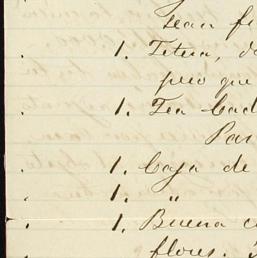 sean fi
1. Tetera, d
pero que
1. Fea Cad
Par
1. Caja de
1. "
1. Buena c
flores.